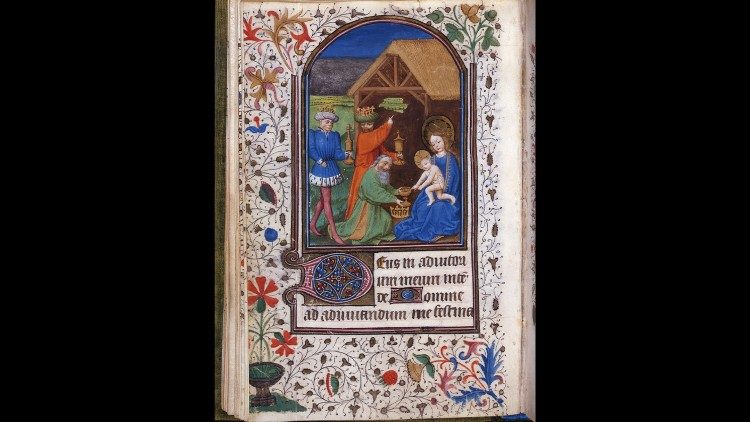 Deus in adiutor
ium meum intē
de Domine
ad adiuuandum me festina